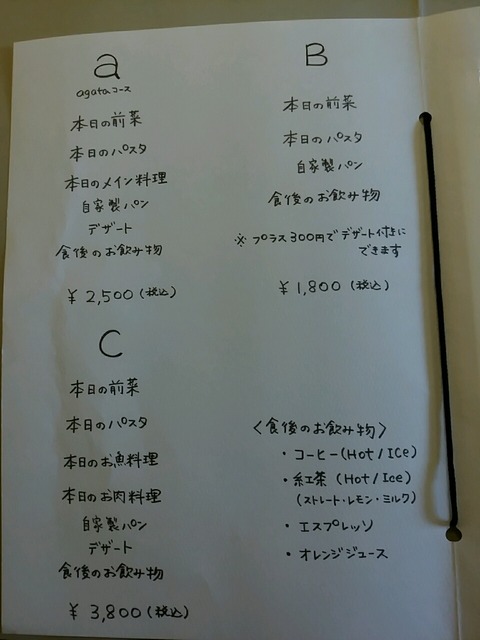 a
agataコース
本日の前菜
本日のパスタ
本日のメイン料理
自家製パン
デザート
食後のお飲み物
¥2,500(税込)
B
本日の前菜
本日のパスタ
自家製パン
食後のお飲み物
※プラス300円でデザート付きに
できます
¥1,800(税込)
C
本日の前菜
本日のパスタ
本日のお魚料理
本日のお肉料理
自家製パン
デザート
食後のお飲み物
¥3,800(税込)
〈食後のお飲み物〉
・コーヒー(Hot/ICe)
・紅茶(Hot/Ice)
(ストレート・レモン・ミルク)
・エスプレッソ
・オレンジジュース